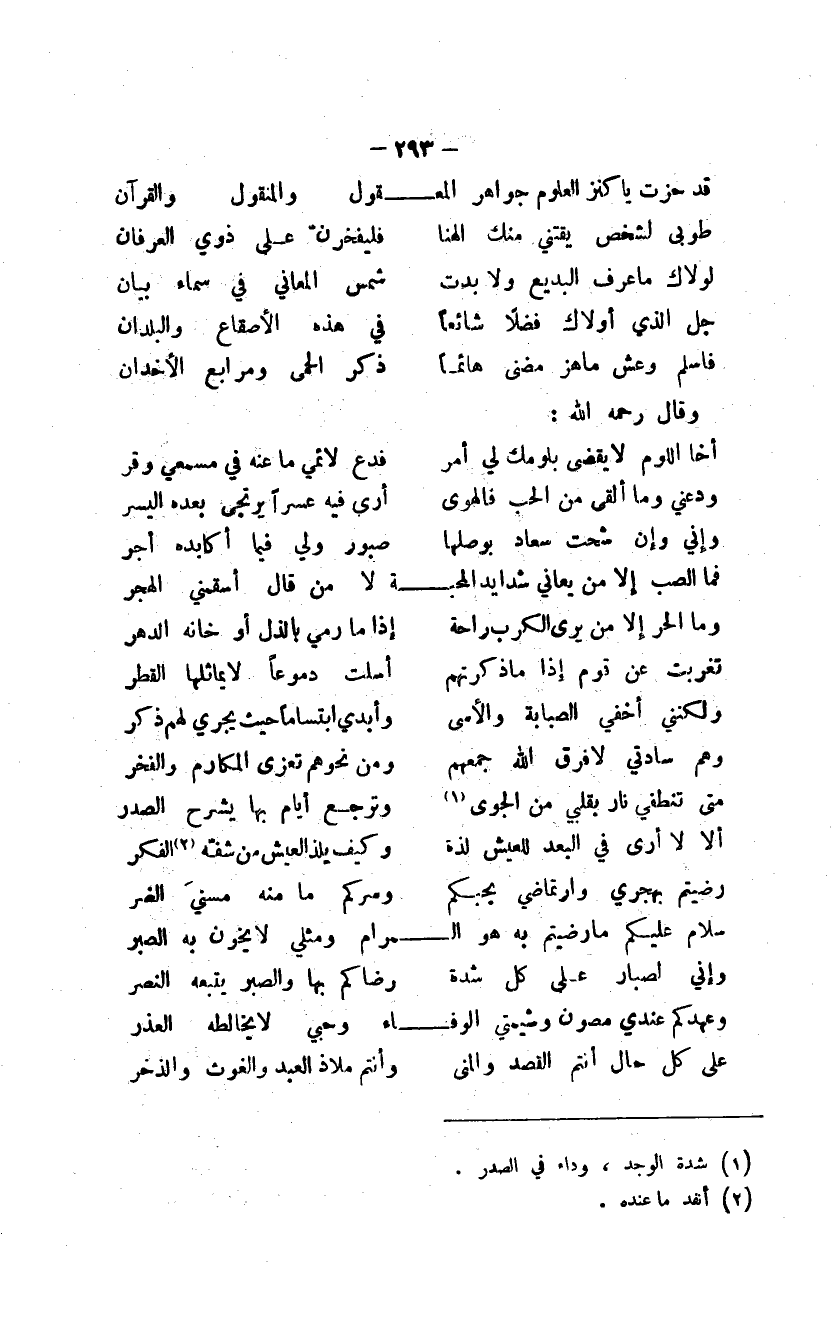 — ٢٩٣ —
قد حزت ياكنز العلوم جواهر المعـــقول والمنقول والقرآن
طوبى لشخص يقتني منك الهنا فليفخرنّ عـلى ذوي العرفان
لولاك ماعرف البديع ولا بدت شمس المعاني في سماء بيان
جل الذي أولاك فضلًا شائعاً في هذه الأصقاع والبلدان
فاسلم وعش ماهز مضنى هائمـاً ذكر الحمى ومرابع الأخدان
وقال رحمه الله :
أخا اللوم لايقضى بلومك لي أمر فدع لائمي ما عنه في مسمعي وقر
ودعني وما ألقى من الحب فالهوى أرى فيه عسراً يرتجى بعده اليسر
وإني وإن شحت سعاد بوصلها صبور ولي فيما أكابده أجر
فما الصب إلا من يعاني شدايد المحبـــة لا من قال أسقمني الهجر
وما الحر إلا من يرى الكرب راحة إذا ما رمي بالذل أو خانه الدهر
تغربت عن قوم إذا ماذكرتهم أسلت دموعاً لايماثلها القطر
ولكنني أخفي الصبابة والأسى وأبدي ابتساماً حيث يجري لهم ذكر
وهم سادتي لافرق الله جمعهم ومن نحوهم تعزى المكارم والفخر
متى تنطفي نار بقلبي من الجوى (١) وترجـع أيام بها يشرح الصدر
ألا لا أرى في البعد للعيش لذة وكيف يلذ العيش من شفّه (٢) الفكر
رضيتم بهجري وارتماضي بحبـكم وسركم ما منه مسنيَ الضر
سلام عليـكم مارضيتم به هو الـــمرام ومثلي لايخون به الصبر
وإني لصبار عـلى كل شدة رضاكم بها والصبر يتبعه النصر
وعهدكم عندي مصون وشيمتي الوفـــاء وحبي لايخالطه العذر
على كل حال أنتم القصد والمنى وأنتم ملاذ العبد والغوث والذخر
(١) شدة الوجد ، وداء في الصدر .
(٢) أنفد ماعنده .